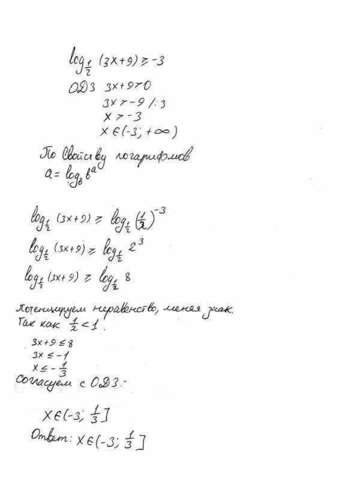 log½ (3x+9) ≥ -3
ОДЗ 3x+9>0
3x>-9 /:3
x>-3
x∈(-3; +∞)
По свойству логарифмов
a = log_b b^a
log½ (3x+9) ≥ log½ (½)^-3
log½ (3x+9) ≥ log½ 2^3
log½ (3x+9) ≥ log½ 8
Потенцируем неравенство, меняя знак
Так как ½ < 1.
3x+9 ≤ 8
3x ≤ -1
x ≤ -1/3
Согласуем с ОДЗ:
x∈(-3; 1/3]
Ответ: x∈(-3; 1/3]